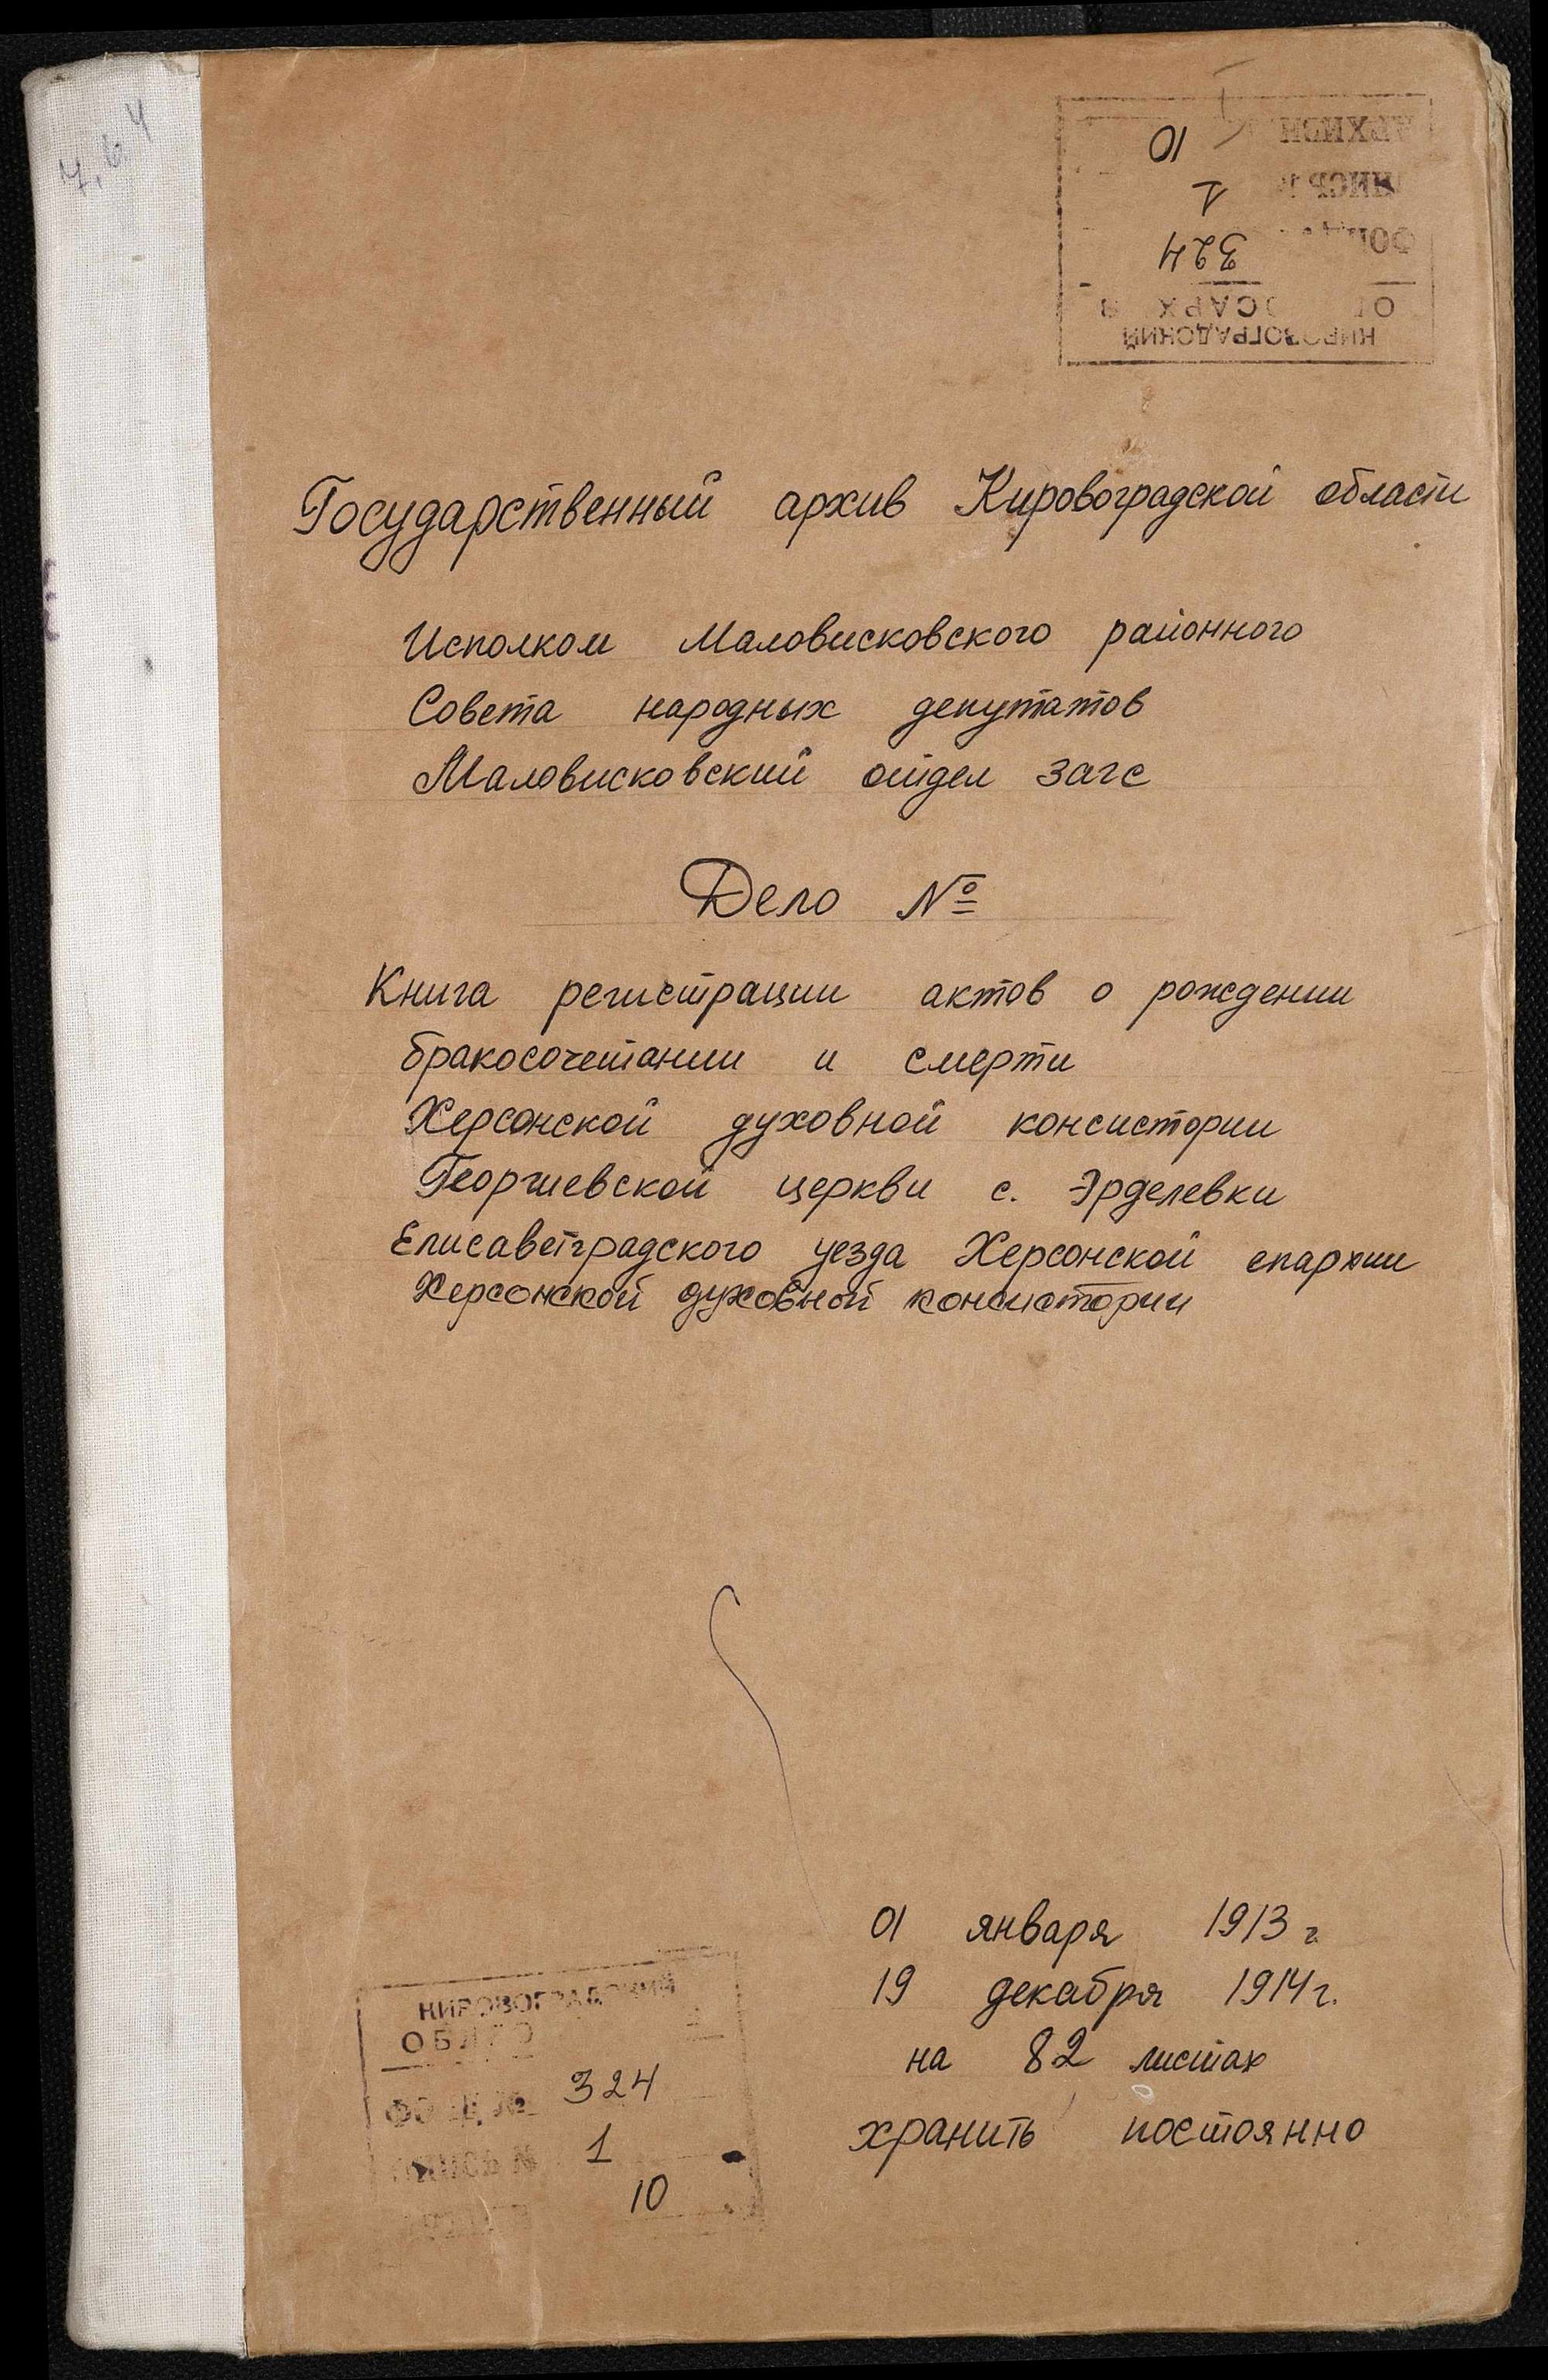 10
1
324
КИРОВОГРАДСКИЙ
Государственный архив Кировоградской области
Исполком Маловисковского районного
Совета народных депутатов
Маловисковский отдел загс
Дело №
Книга регистрации актов о рождении
бракосочетании и смерти
Херсонской духовной консистории
Георгиевской церкви с. Эрделевки
Елисаветградского уезда Херсонской епархии
Херсонской духовной консистории
01 января 1913 г
19 декабря 1914 г.
на 82 листах
хранить постоянно
КИРОВОГРАДСКИЙ
ФОНД № 324
ОПИСЬ № 1
10